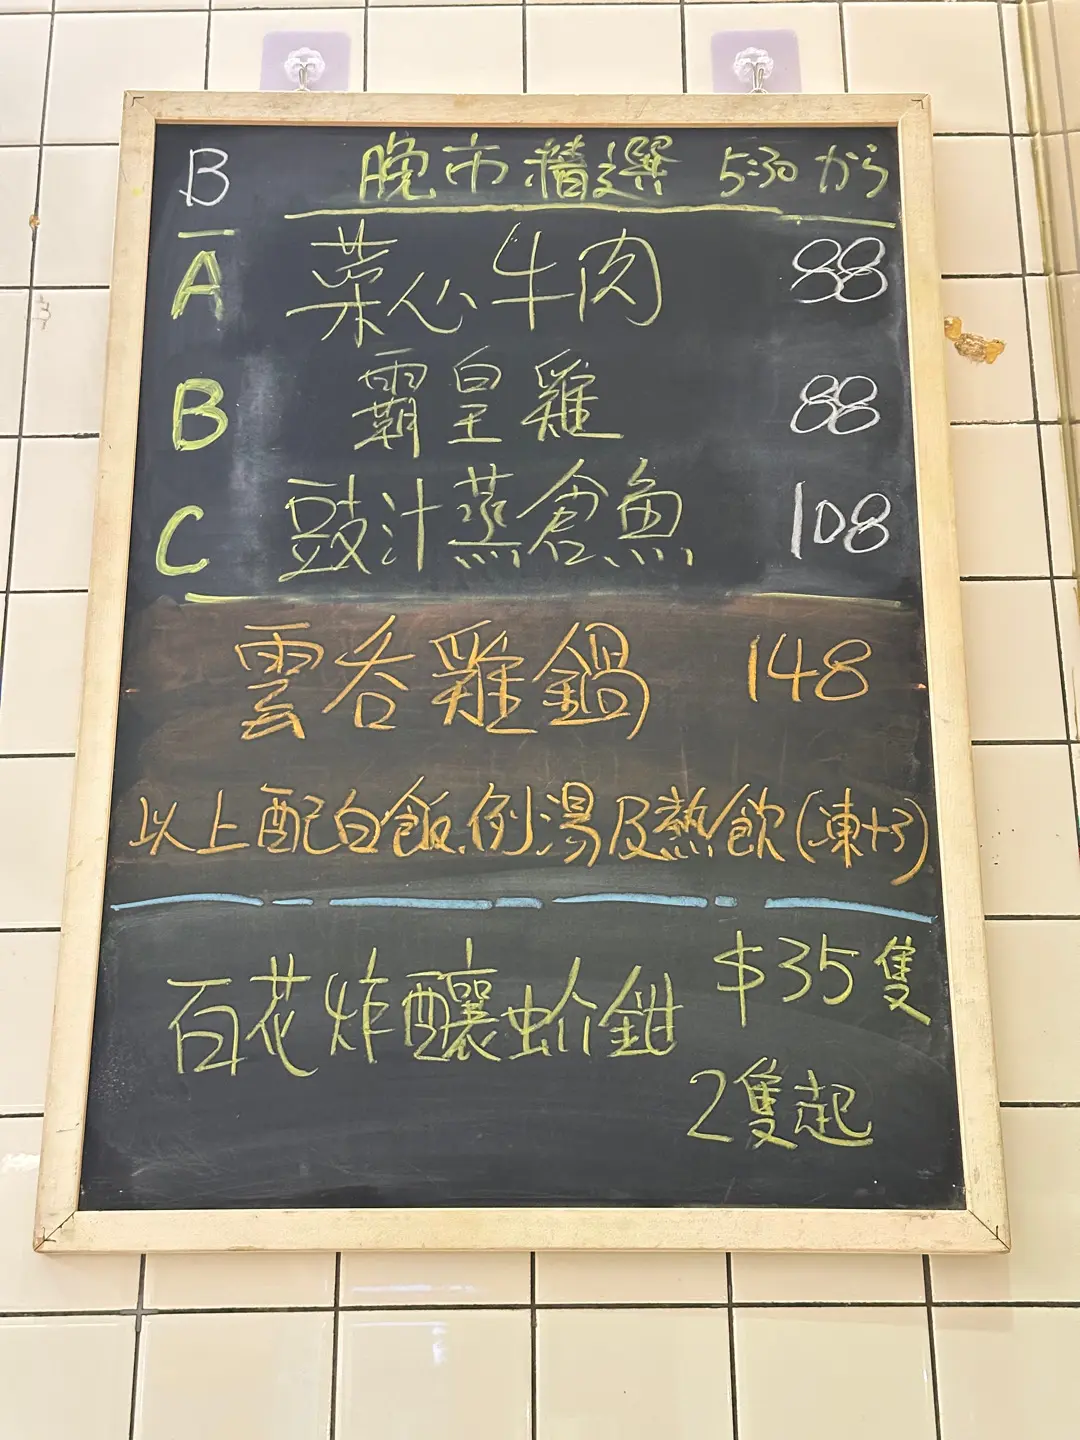 B 晚市精選 5:30 から
A 菜心牛肉 88
B 霸皇雞 88
C 豉汁蒸倉魚 108
雲吞雞鍋 148
以上配白飯,例湯及熱飲(凍+3)
百花炸釀蚧鉗 $35隻
2隻起